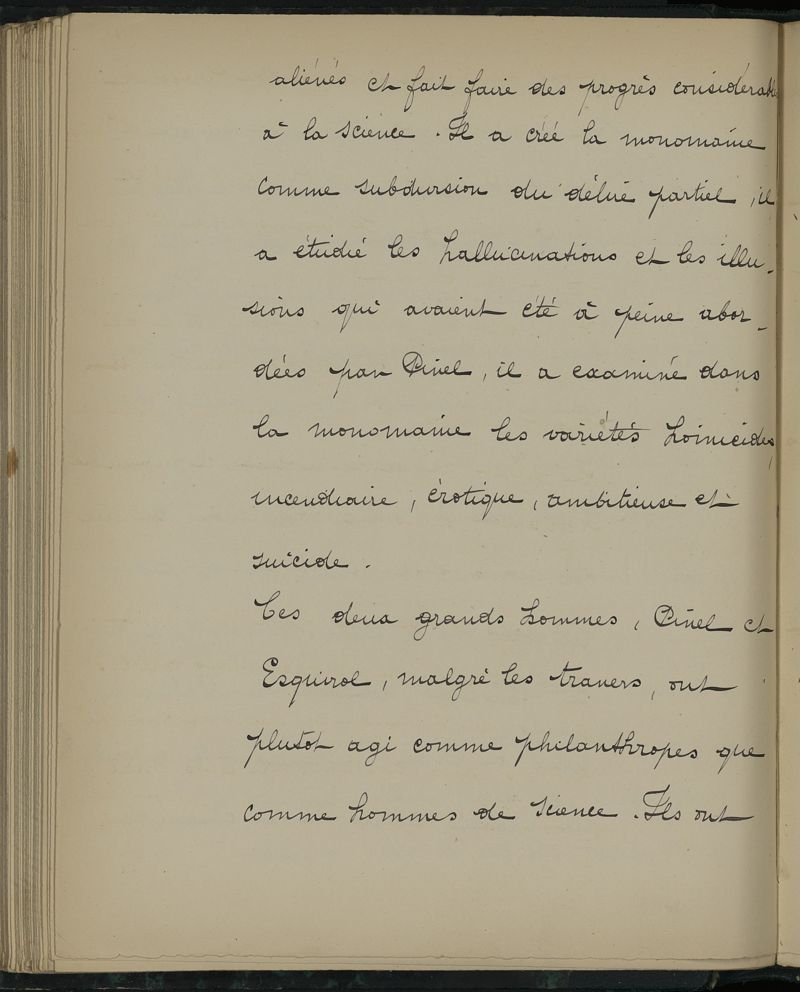 aliénés et fait faire des progrès considérables
à la science. Il a créé la monomanie
comme subdivision du délire partiel, il
a étudié les hallucinations et les illu-
sions qui avaient été à peine abor-
dées par Pinel, il a examiné dans
la monomanie les variétés homicides,
incendiaire, érotique, ambitieuse et
suicide.
Ces deux grands hommes, Pinel et
Esquirol, malgré les travers, ont
plutôt agi comme philanthropes que
comme hommes de science. Ils ont